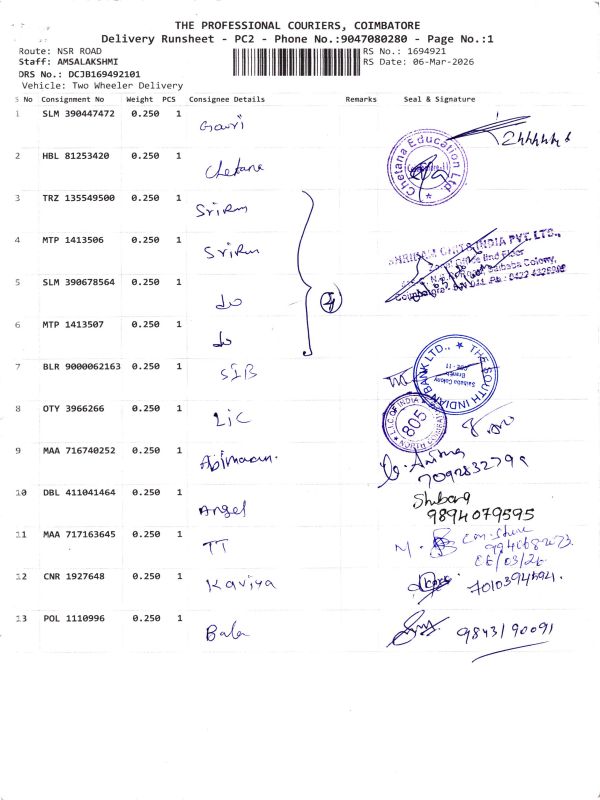 THE PROFESSIONAL COURIERS, COIMBATORE
Delivery Runsheet - PC2 - Phone No.:9047080280 - Page No.:1
Route: NSR ROAD
RS No.: 1694921
Staff: AMSALAKSHMI
RS Date: 06-Mar-2026
DRS No.: DCJB169492101
Vehicle: Two Wheeler Delivery
S No Consignment No Weight PCS Consignee Details Remarks Seal & Signature
1 SLM 390447472 0.250 1 Gowri
2 HBL 81253420 0.250 1 Chetana
Chetana Education Ltd
3 TRZ 135549500 0.250 1 SriRam
4 MTP 1413506 0.250 1 SriRam
SHRIRAM CHITS INDIA PVT. LTD.,
IInd Floor
Saibaba Colony,
Ph : 0422 4326909
5 SLM 390678564 0.250 1 do
4
6 MTP 1413507 0.250 1 do
7 BLR 9000062163 0.250 1 SIB
THE SOUTH INDIAN BANK LTD.,
Saibaba Colony
Branch
CBE - 11
8 OTY 3966266 0.250 1 LIC
L.I.C OF INDIA
805
9 MAA 716740252 0.250 1 Abimaan.
7092832799
10 DBL 411041464 0.250 1 Angel
9894079595
11 MAA 717163645 0.250 1 TT
06/03/26
12 CNR 1927648 0.250 1 Kaviya
13 POL 1110996 0.250 1 Bala
9843190091